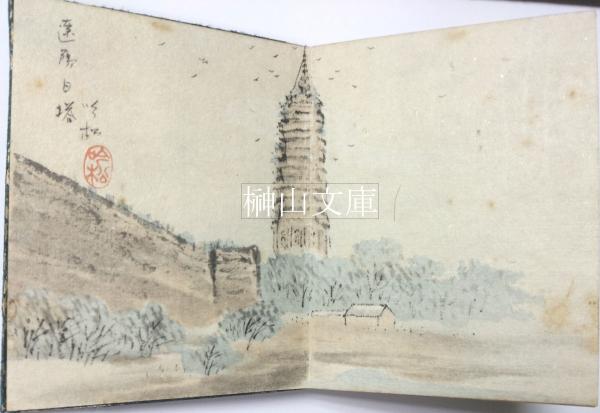 遼陽白塔
吟松
吟松
榊山文庫